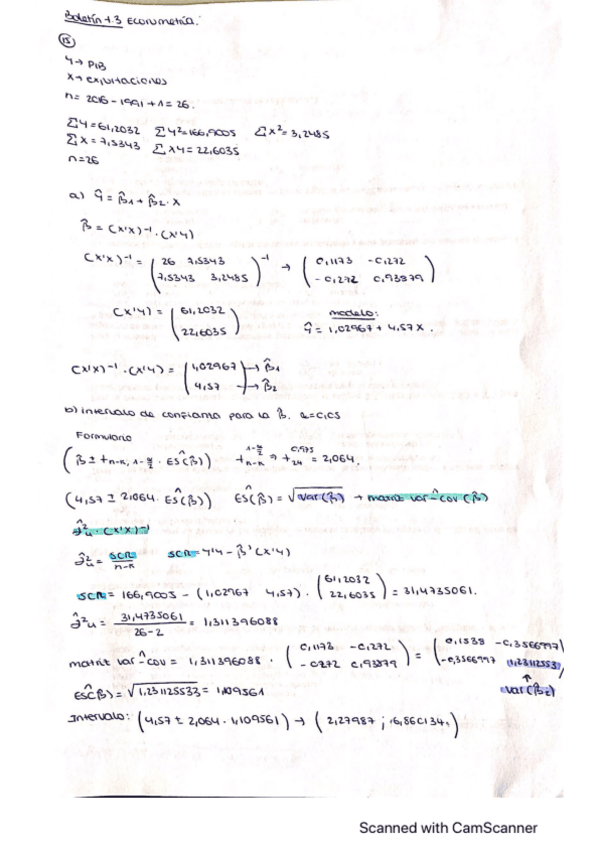 Boletín 1.3 Econometría.
15
Y → PIB
X → exportaciones
n = 2016 - 1991 + 1 = 26.
ΣY = 61,2032 ΣY² = 166,9005 ΣX² = 3,2485
ΣX = 7,5343 ΣXY = 22,6035
n = 26
a) Ŷ = β̂1 + β̂2 · X
β̂ = (X'X)⁻¹ · (X'Y)
(X'X)⁻¹ = ( 26 7,5343 )⁻¹ → ( 0,1173 -0,272 )
( 7,5343 3,2485 ) ( -0,272 0,93879 )
(X'Y) = ( 61,2032 ) modelo:
( 22,6035 ) Ŷ = 1,02967 + 4,57X.
(X'X)⁻¹ · (X'Y) = ( 1,02967 ) → β̂1
( 4,57 ) → β̂2
b) intervalo de confianza para la β. α = 0,05
Formulario
( β̂ ± t n-k, 1-α/2 · ES(β̂) ) t n-k 1-α/2 ⇒ t 24 0,975 = 2,064.
( 4,57 ± 2,064 · ES(β̂) ) ES(β̂) = √var(β̂) → matriz var-cov (β̂)
σ̂²u · (X'X)⁻¹
σ̂²u = SCR / n-k SCR = Y'Y - β̂'(X'Y)
SCR = 166,9005 - (1,02967 4,57) · ( 61,2032 ) = 31,4735061.
( 22,6035 )
σ̂²u = 31,4735061 / 26-2 = 1,311396088
matriz var-cov = 1,311396088 · ( 0,1173 -0,272 ) = ( 0,1538 -0,3566997 )
( -0,272 0,93879 ) ( -0,3566997 1,231125533 )
ES(β̂) = √1,231125533 = 1,109561 var(β̂2)
Intervalo: ( 4,57 ± 2,064 · 1,109561 ) → ( 2,27987 ; 6,860134. )
Scanned with CamScanner